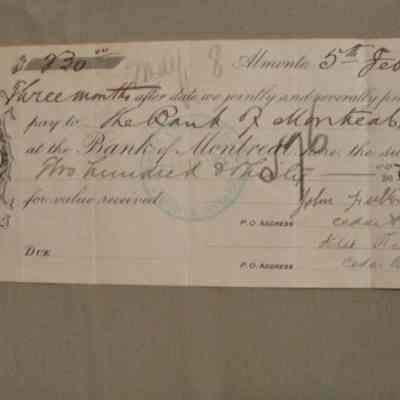 $ 230 00 May 8 Almonte 5th Feb
Three months after date we jointly and severally pro
pay to The Bank of Montreal
at the Bank of Montreal here, the su
Two hundred & Thirty
for value received John
P.O. ADDRESS Cedar
DUE
P.O. ADDRESS Cedar